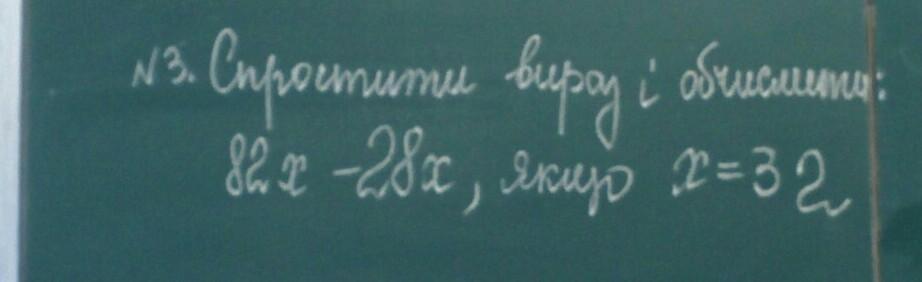 №3. Спростити вираз і обчислити:
82x - 28x, якщо x = 32